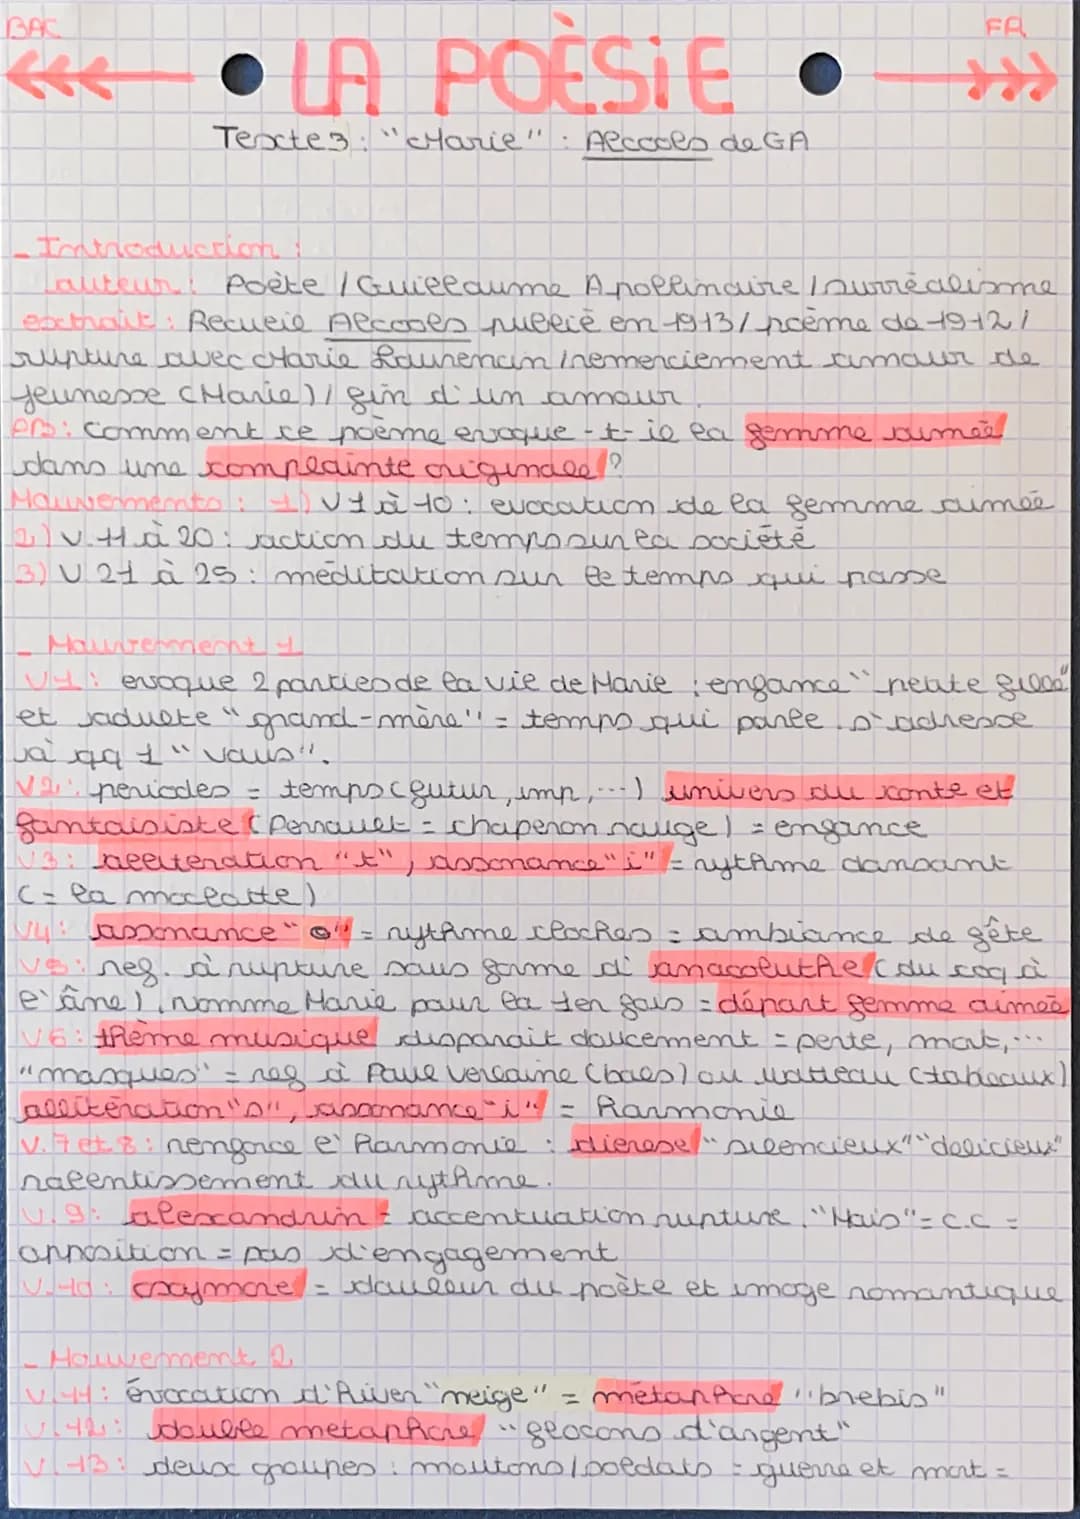 BAC FR
LA POÈSiE
Texte 3 : "Marie" : Alcools de GA
- Introduction :
Lauteur : Poète / Guillaume Apollinaire / surréalisme
extrait : Recueil Alcools publié en 1913 / poème de 1912 /
rupture avec Marie Laurencin / remerciement amour de
jeunesse (Marie) / fin d'un amour.
PB : Comment ce poème evoque-t-il la femme aimée
dans une complainte originale ?
Mouvements : 1) V1 à 10 : evocation de la femme aimée
2) V.11 à 20 : action du temps sur la société
3) V 21 à 25 : méditation sur le temps qui passe
- Mouvement 1
V1 : evoque 2 parties de la vie de Marie : enfance "petite fille"
et adulte "grand-mère" = temps qui parle. s'adresse
à qq 1 "vous".
V2 : periodes = temps (futur, imp, ...) univers du conte et
fantaisiste (Perrault = chaperon rouge) = enfance
V3 : alliteration "t", assonance "i" = rythme dansant
(= la maclotte)
V4 : assonance "o" = rythme cloches = ambiance de fête
V5 : ref. à rupture sous forme d'anacoluthe (du coq à
l'âne), nomme Marie pour la 1er fois = départ femme aimée
V6 : thème musique disparait doucement = perte, mort, ...
"masques" = ref à Paul Verlaine (bals) ou Watteau (tableaux)
allitération "s", assonance "i" = Harmonie
V.7 et 8 : renforce l'harmonie : dierese "silencieux" "delicieux"
ralentissement du rythme.
V.9 : alexandrin = accentuation rupture. "Mais" = c.c =
opposition = pas d'engagement
V.10 : oxymore = douleur du poète et image romantique
- Mouvement 2
V.11 : évocation d'hiver "neige" = métaphore "brebis"
V.12 : double metaphore "flocons d'argent"
V.13 : deux groupes : moutons / soldats = guerre et mort =